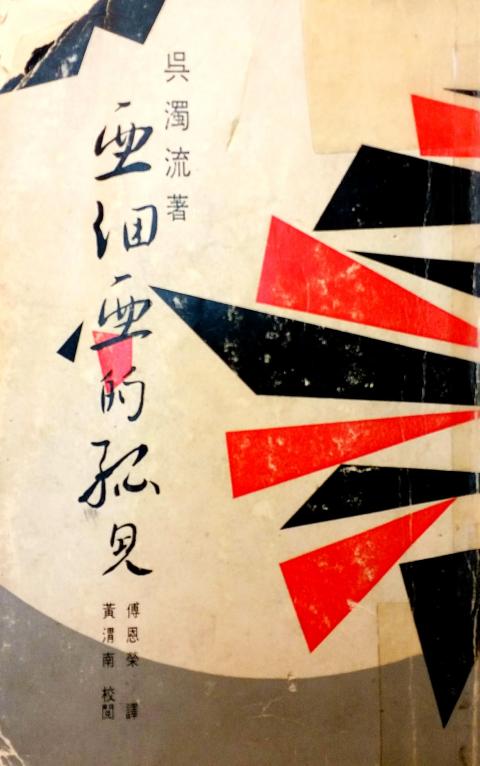 吳濁流著
亜细亜的孤児
傅恩榮 譯
黃渭南 校閱